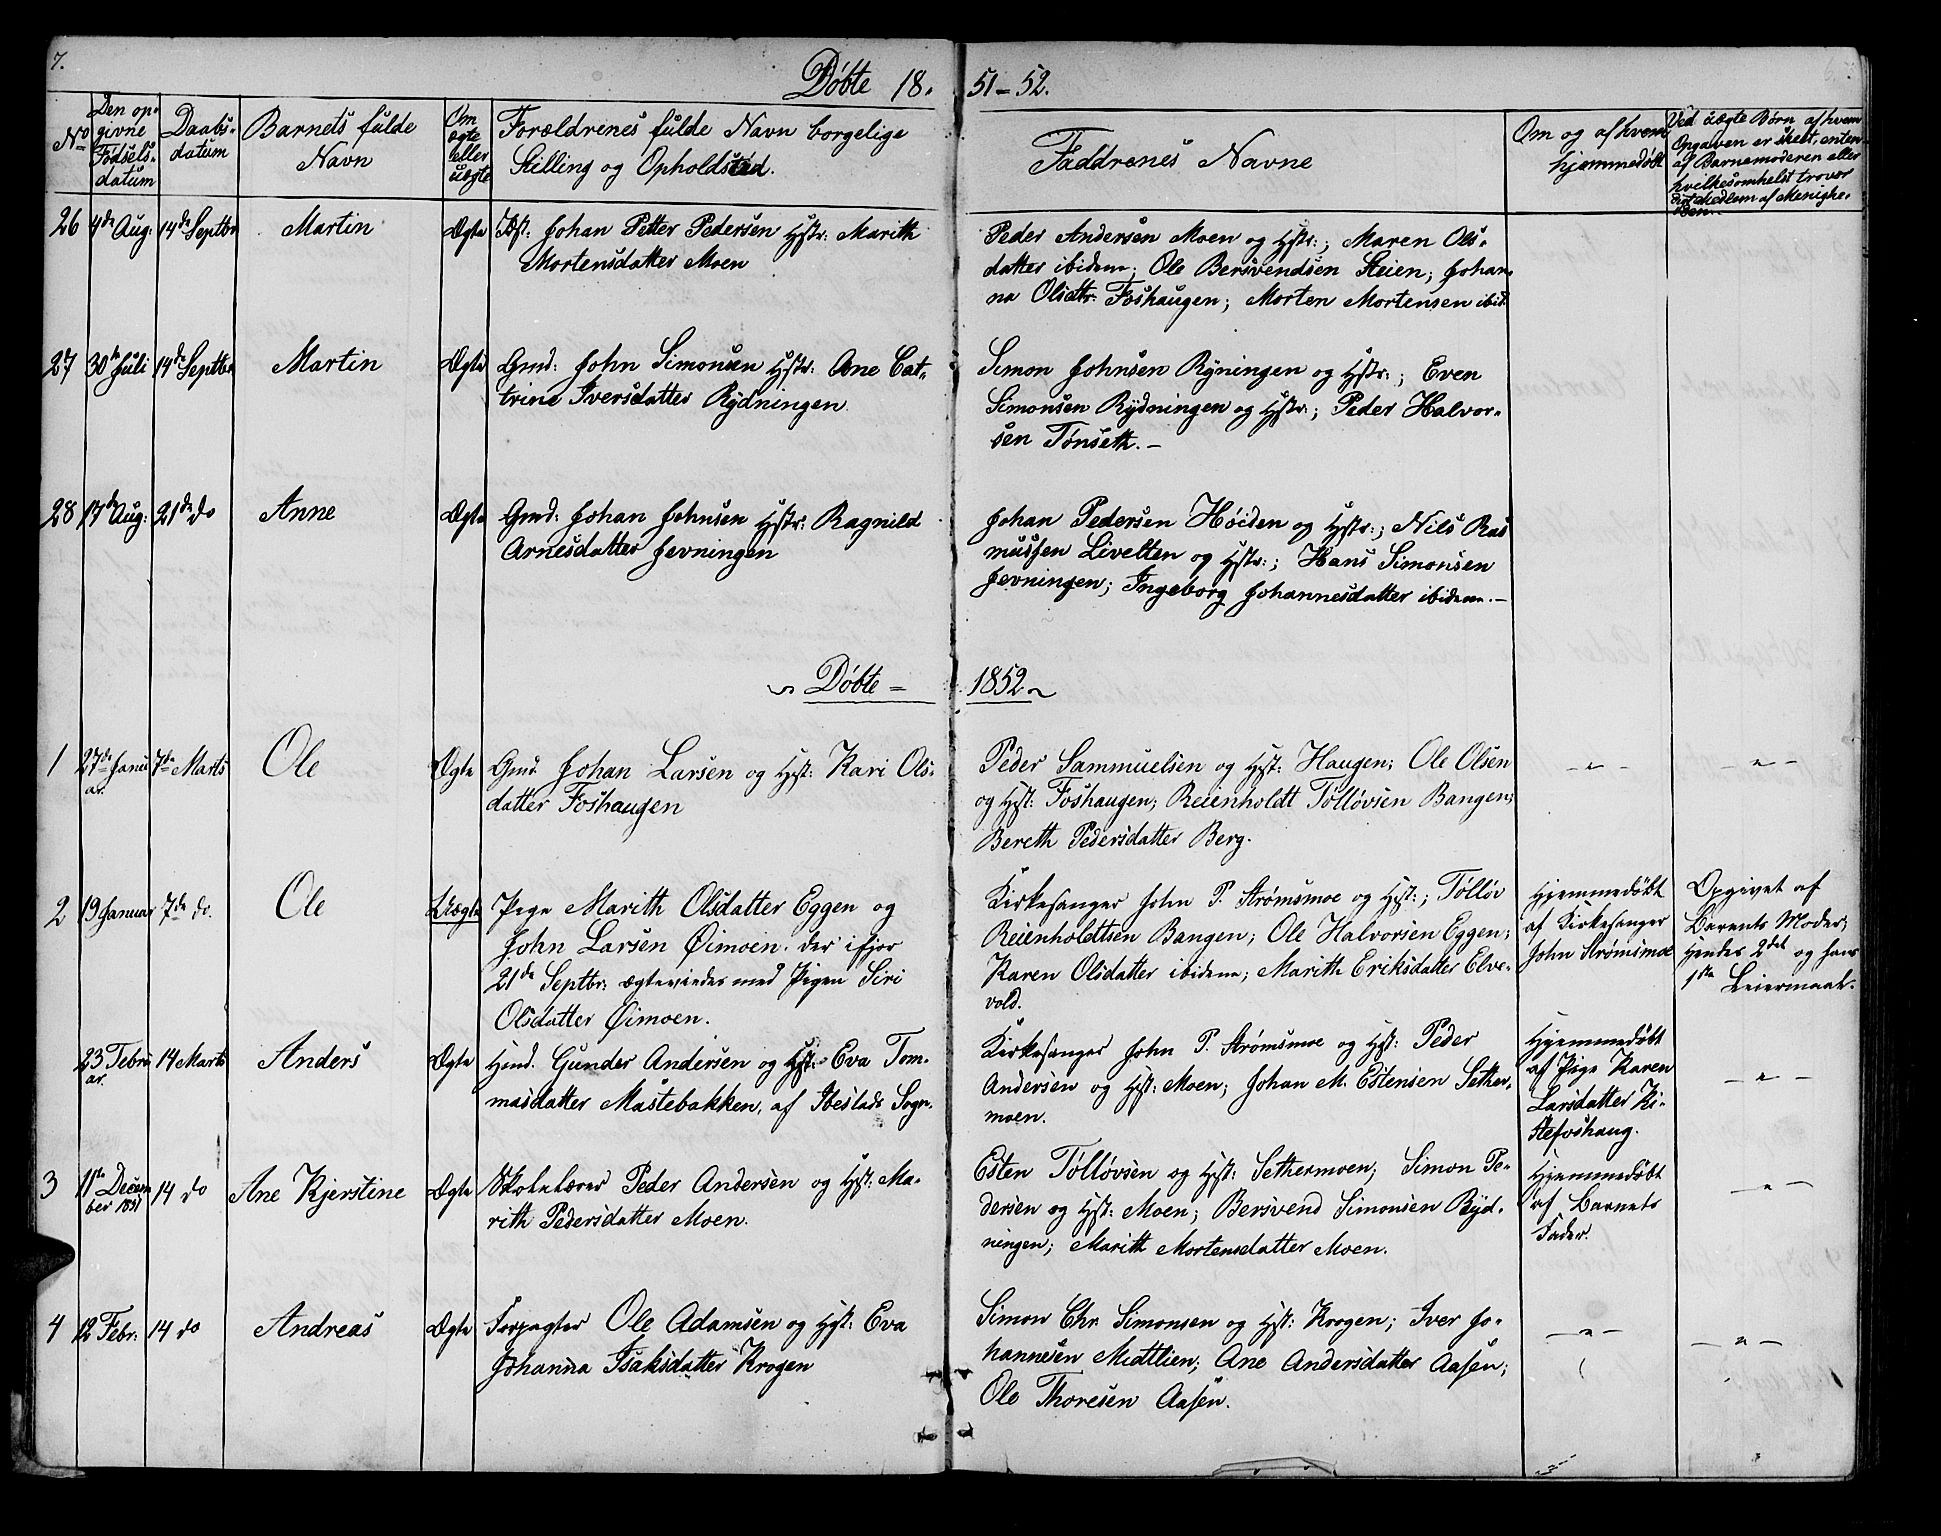 7.
Døbte 18. 51-52.
No
Den op-
givne
Fødsels-
datum
Daabs-
datum
Barnets fulde
Navn
Om
ægte
eller
uægte
Forældrenes fulde Navn borgelige
Stilling og Opholdsted.
Faddrenes Navne
Om og af hvem
hjemmedøbt
Ved uægte Børn af hvem
Opgaven er skeet, enten
af Barnemoderen eller
hvilkesomhelst trover
digt Medlem af Menighe-
den.
26 4de Aug: 14de Septbr Martin Ægte Johan Petter Pedersen Hstr: Marith
Mortensdatter Moen
Peder Andersen Moen og Hstr:; Maren Ols-
datter ibidem; Ole Bersvendsen Steien; Johan-
na Olsdtr: Foshaugen; Morten Mortensen ibid.
27 30te Juli 14de Septbr Martin Ægte Gmd: John Simonsen Hstr: Ane Cat-
trine Iversdatter Rydningen
Simon Johnsen Ryningen og Hstr:; Even
Simonsen Rydningen og Hstr:; Peder Halvor-
sen Tønseth.-
28 17de Aug: 21de do Anne Ægte Gmd: Johan Johnsen Hstr: Ragnild
Arnesdatter Jevningen
Johan Pedersen Høiden og Hstr:; Nils Ras
mussen Livelten og Hstr:; Hans Simonsen
Jevningen; Ingeborg Johannesdatter ibidem.-
Døbte = 1852
1 27de Janu
ar. 7de Marts Ole Ægte Gmd. Johan Larsen og Hst: Kari Ols-
datter Foshaugen
Peder Sammuelsen og Hst: Haugen; Ole Olsen
og Hst: Foshaugen; Reienholdt Tølløvsen Bangen;
Bereth Pedersdatter Berg.
-"- -"-
2 19 Januar 7de do. Ole Uægte Pige Marith Olsdatter Eggen og
John Larsen Øimoen. der ifjor
21de Septbr: ægteviedes med Pigen Siri
Olsdatter Øimoen.
Kirkesanger John P. Strømsmoe og Hst:; Tølløv
Reienholdtsen Bangen; Ole Halvorsen Eggen;
Karen Olsdatter ibidem; Marith Eriksdatter Elve-
vold.
Hjemmedøbt
af Kirkesanger
John Strømsmoe
Opgivet af
Barnets Moder;
hendes 2det og hans
1ste Leiermaal.
23 Febru
ar. 14 Marts Anders Ægte Hmd. Gunder Andersen og Hst: Eva Tom-
masdatter Mastebakken, af Ibestads Sogn.
Kirkesanger John P. Strømsmoe og Hst: Peder
Andersen og Hst: Moen; Johan M. Estensen Sether-
moen.
Hjemmedøbt
af Pige Karen
Larsdatter Ki-
stefoshaug.
-"-
3 11te Decem
ber 1851 14 do Ane Kjerstine Ægte Skolelærer Peder Andersen og Hst: Ma-
rith Pedersdatter Moen.
Esten Tølløvsen og Hst: Sethermoen; Simon Pe-
dersen og Hst: Moen; Bersvend Simonsen Ryd-
ningen; Marith Mortensdatter Moen.
Hjemmedøbt
af Barnets
Fader.
-"-
4 12 Febr: 14 do Andreas Ægte Forpagter Ole Adamsen og Hst: Eva
Johanna Isaksdatter Krogen
Simon Chr. Simonsen og Hst: Krogen; Iver Jo-
hannesen Midtlien; Ane Andersdatter Aasen;
Ole Thoresen Aasen.
-"- -"-